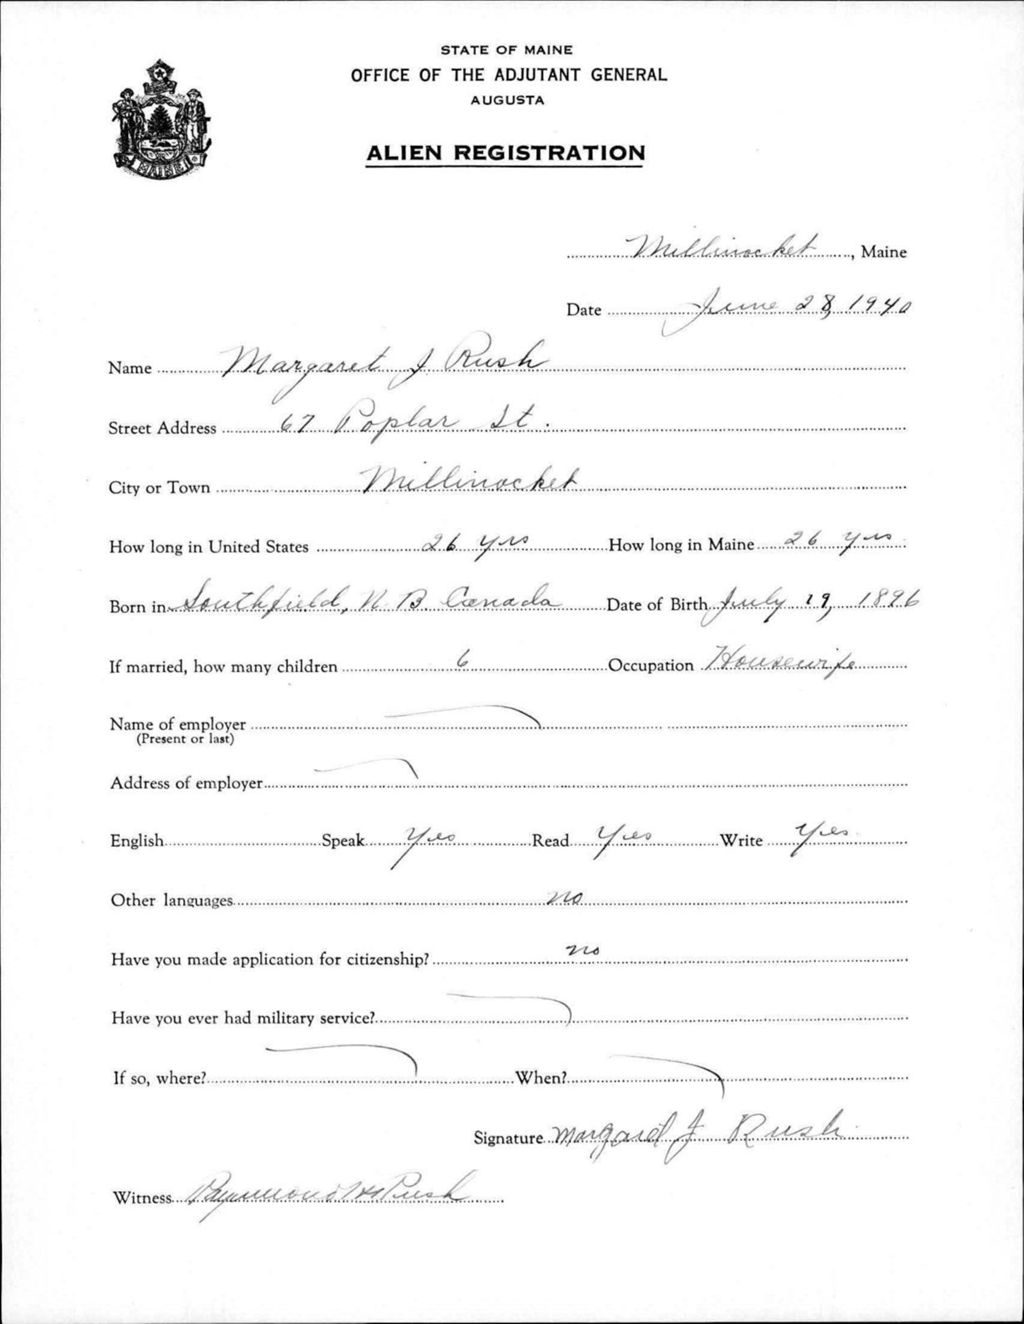 STATE OF MAINE
OFFICE OF THE ADJUTANT GENERAL
AUGUSTA
ALIEN REGISTRATION
MAINE
Millinocket, Maine
Date June 28, 1940
Name Margaret J Rush
Street Address 67 Poplar St.
City or Town Millinocket
How long in United States 26 yrs How long in Maine 26 yrs
Born in Southfield, N B. Canada Date of Birth July 19, 1896
If married, how many children 6 Occupation Housewife
Name of employer
(Present or last)
Address of employer
English Speak Yes Read Yes Write Yes
Other languages no
Have you made application for citizenship? no
Have you ever had military service?
If so, where? When?
Signature Margaret J Rush
Witness Raymond H Rush